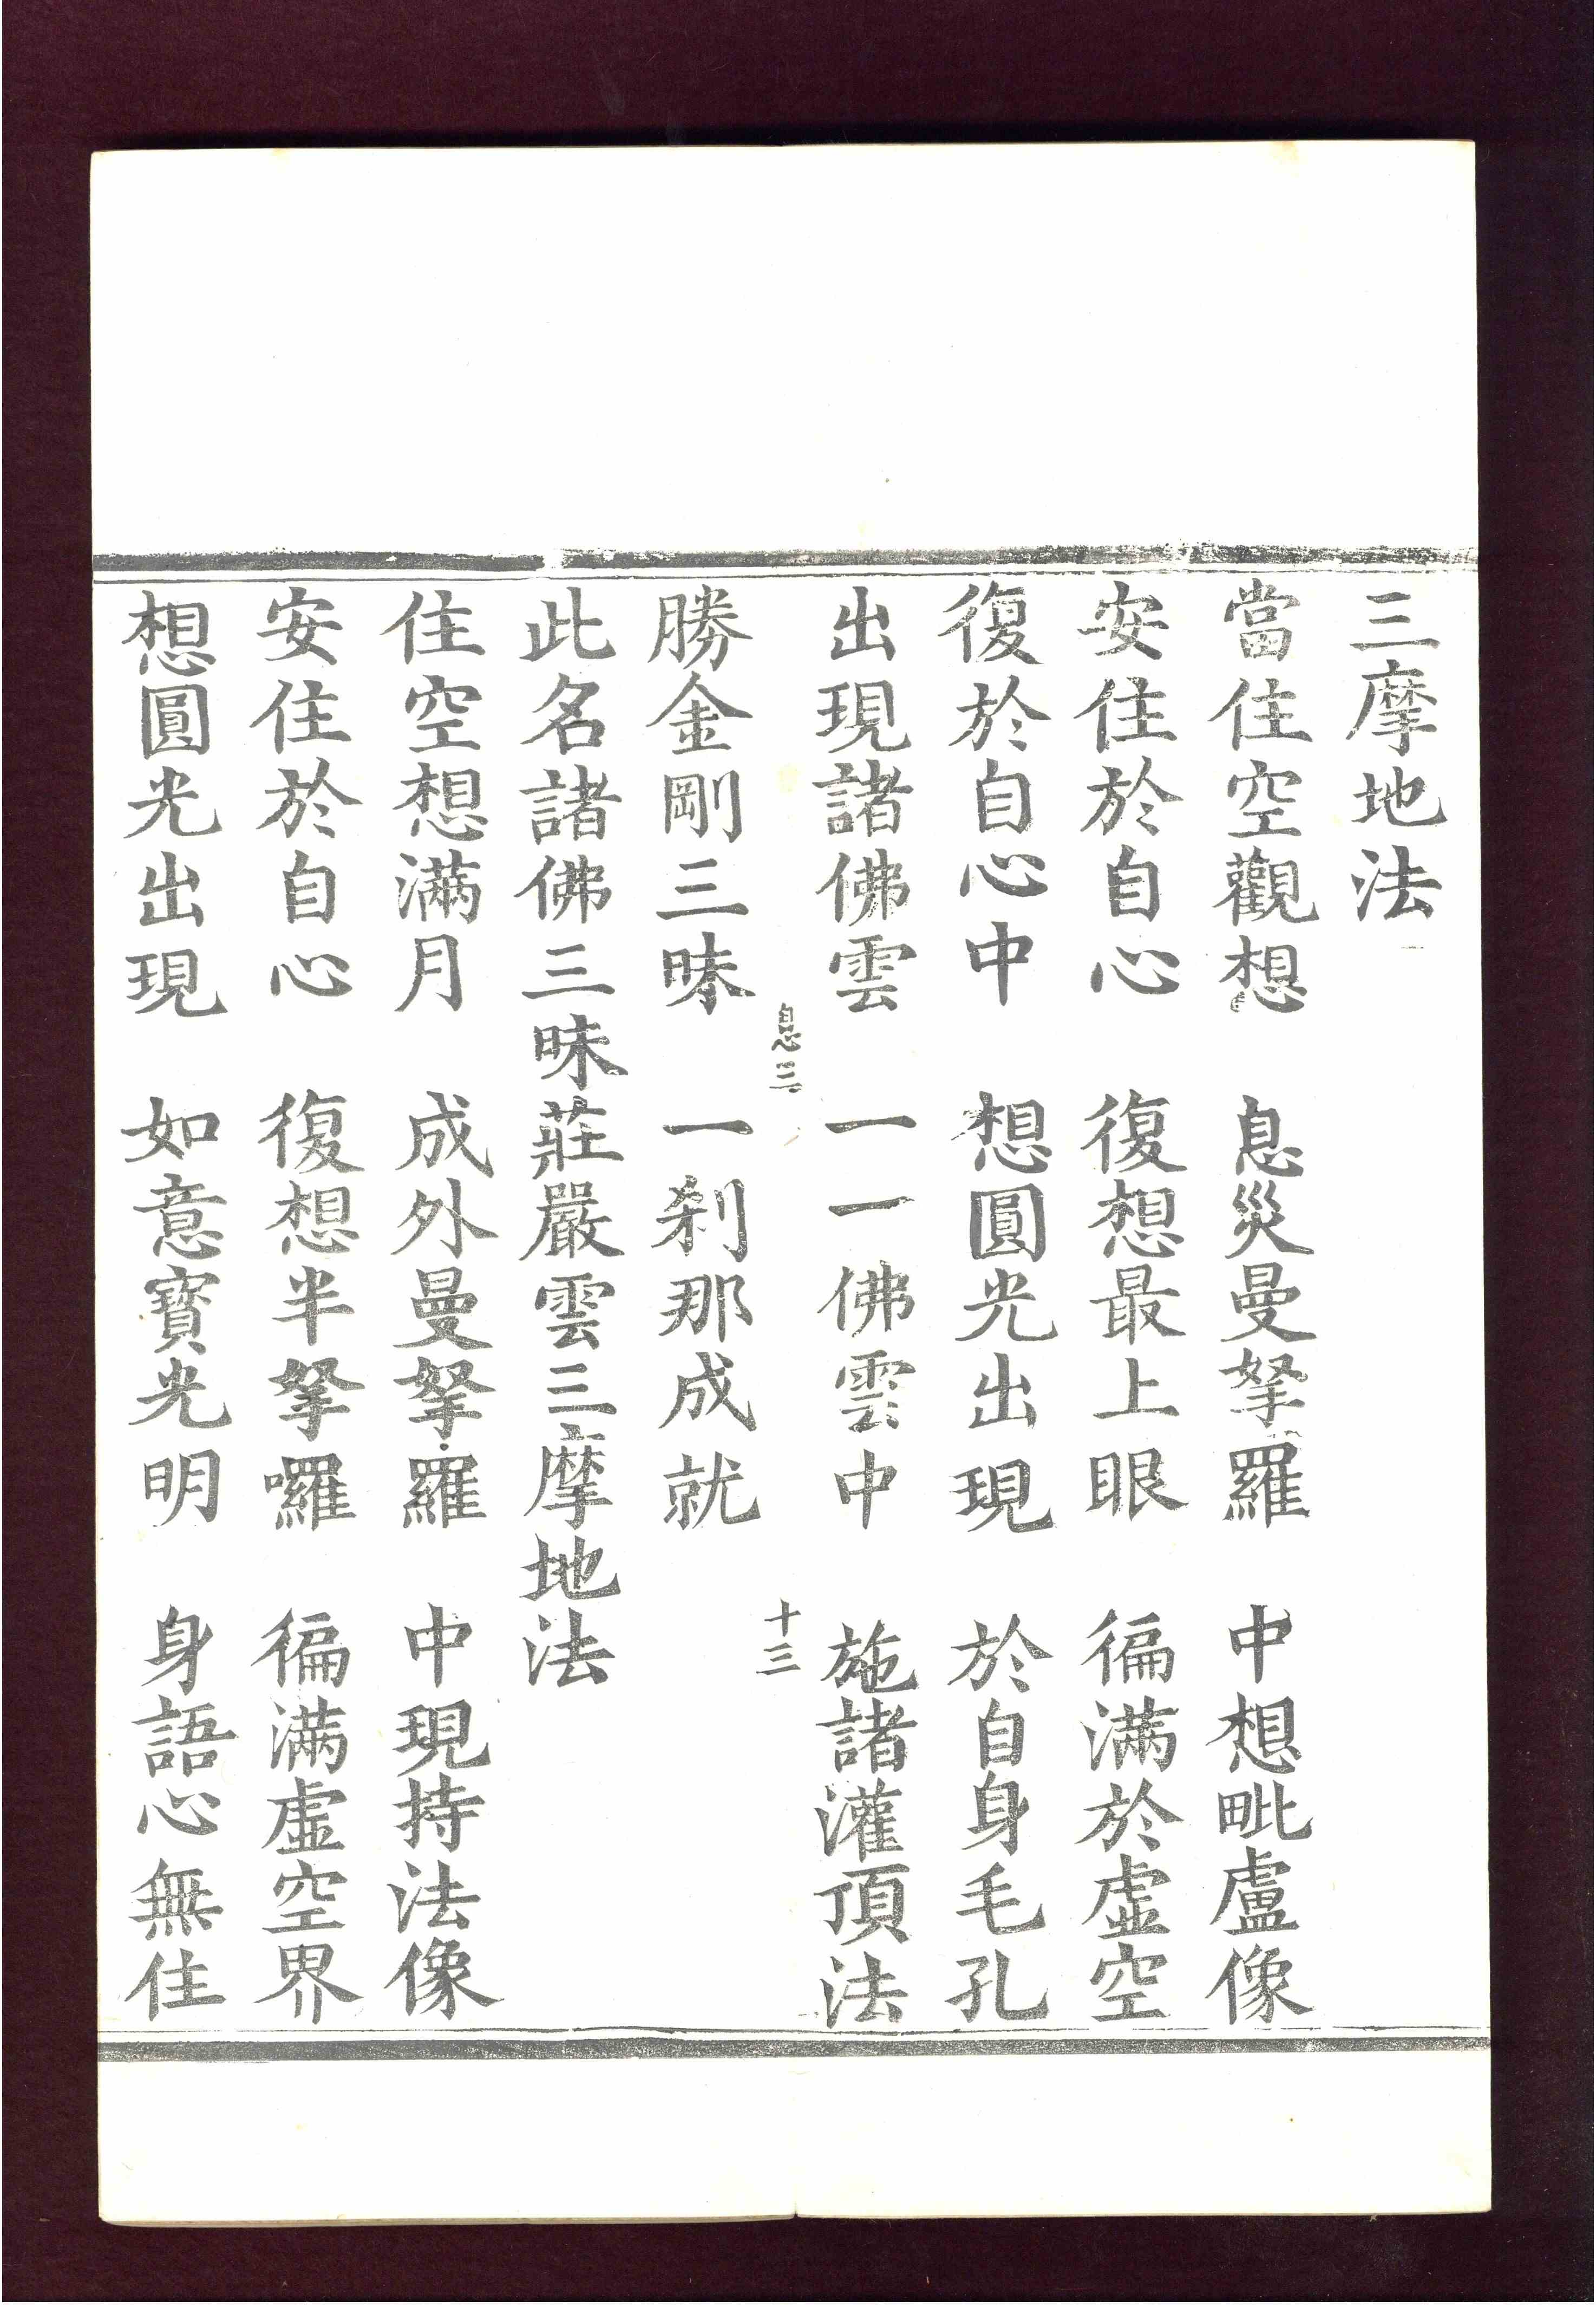 三摩地法
當住空觀想　息災曼拏羅　中想毗盧像
安住於自心　復想最上眼　徧滿於虛空
復於自心中　想圓光出現　於自身毛孔
出現諸佛雲　一一佛雲中　施諸灌頂法
息三　十三
勝金剛三昧　一刹那成就
此名諸佛三昧莊嚴雲三摩地法
住空想滿月　成外曼拏羅　中現持法像
安住於自心　復想半拏囉　徧滿虛空界
想圓光出現　如意寶光明　身語心無住